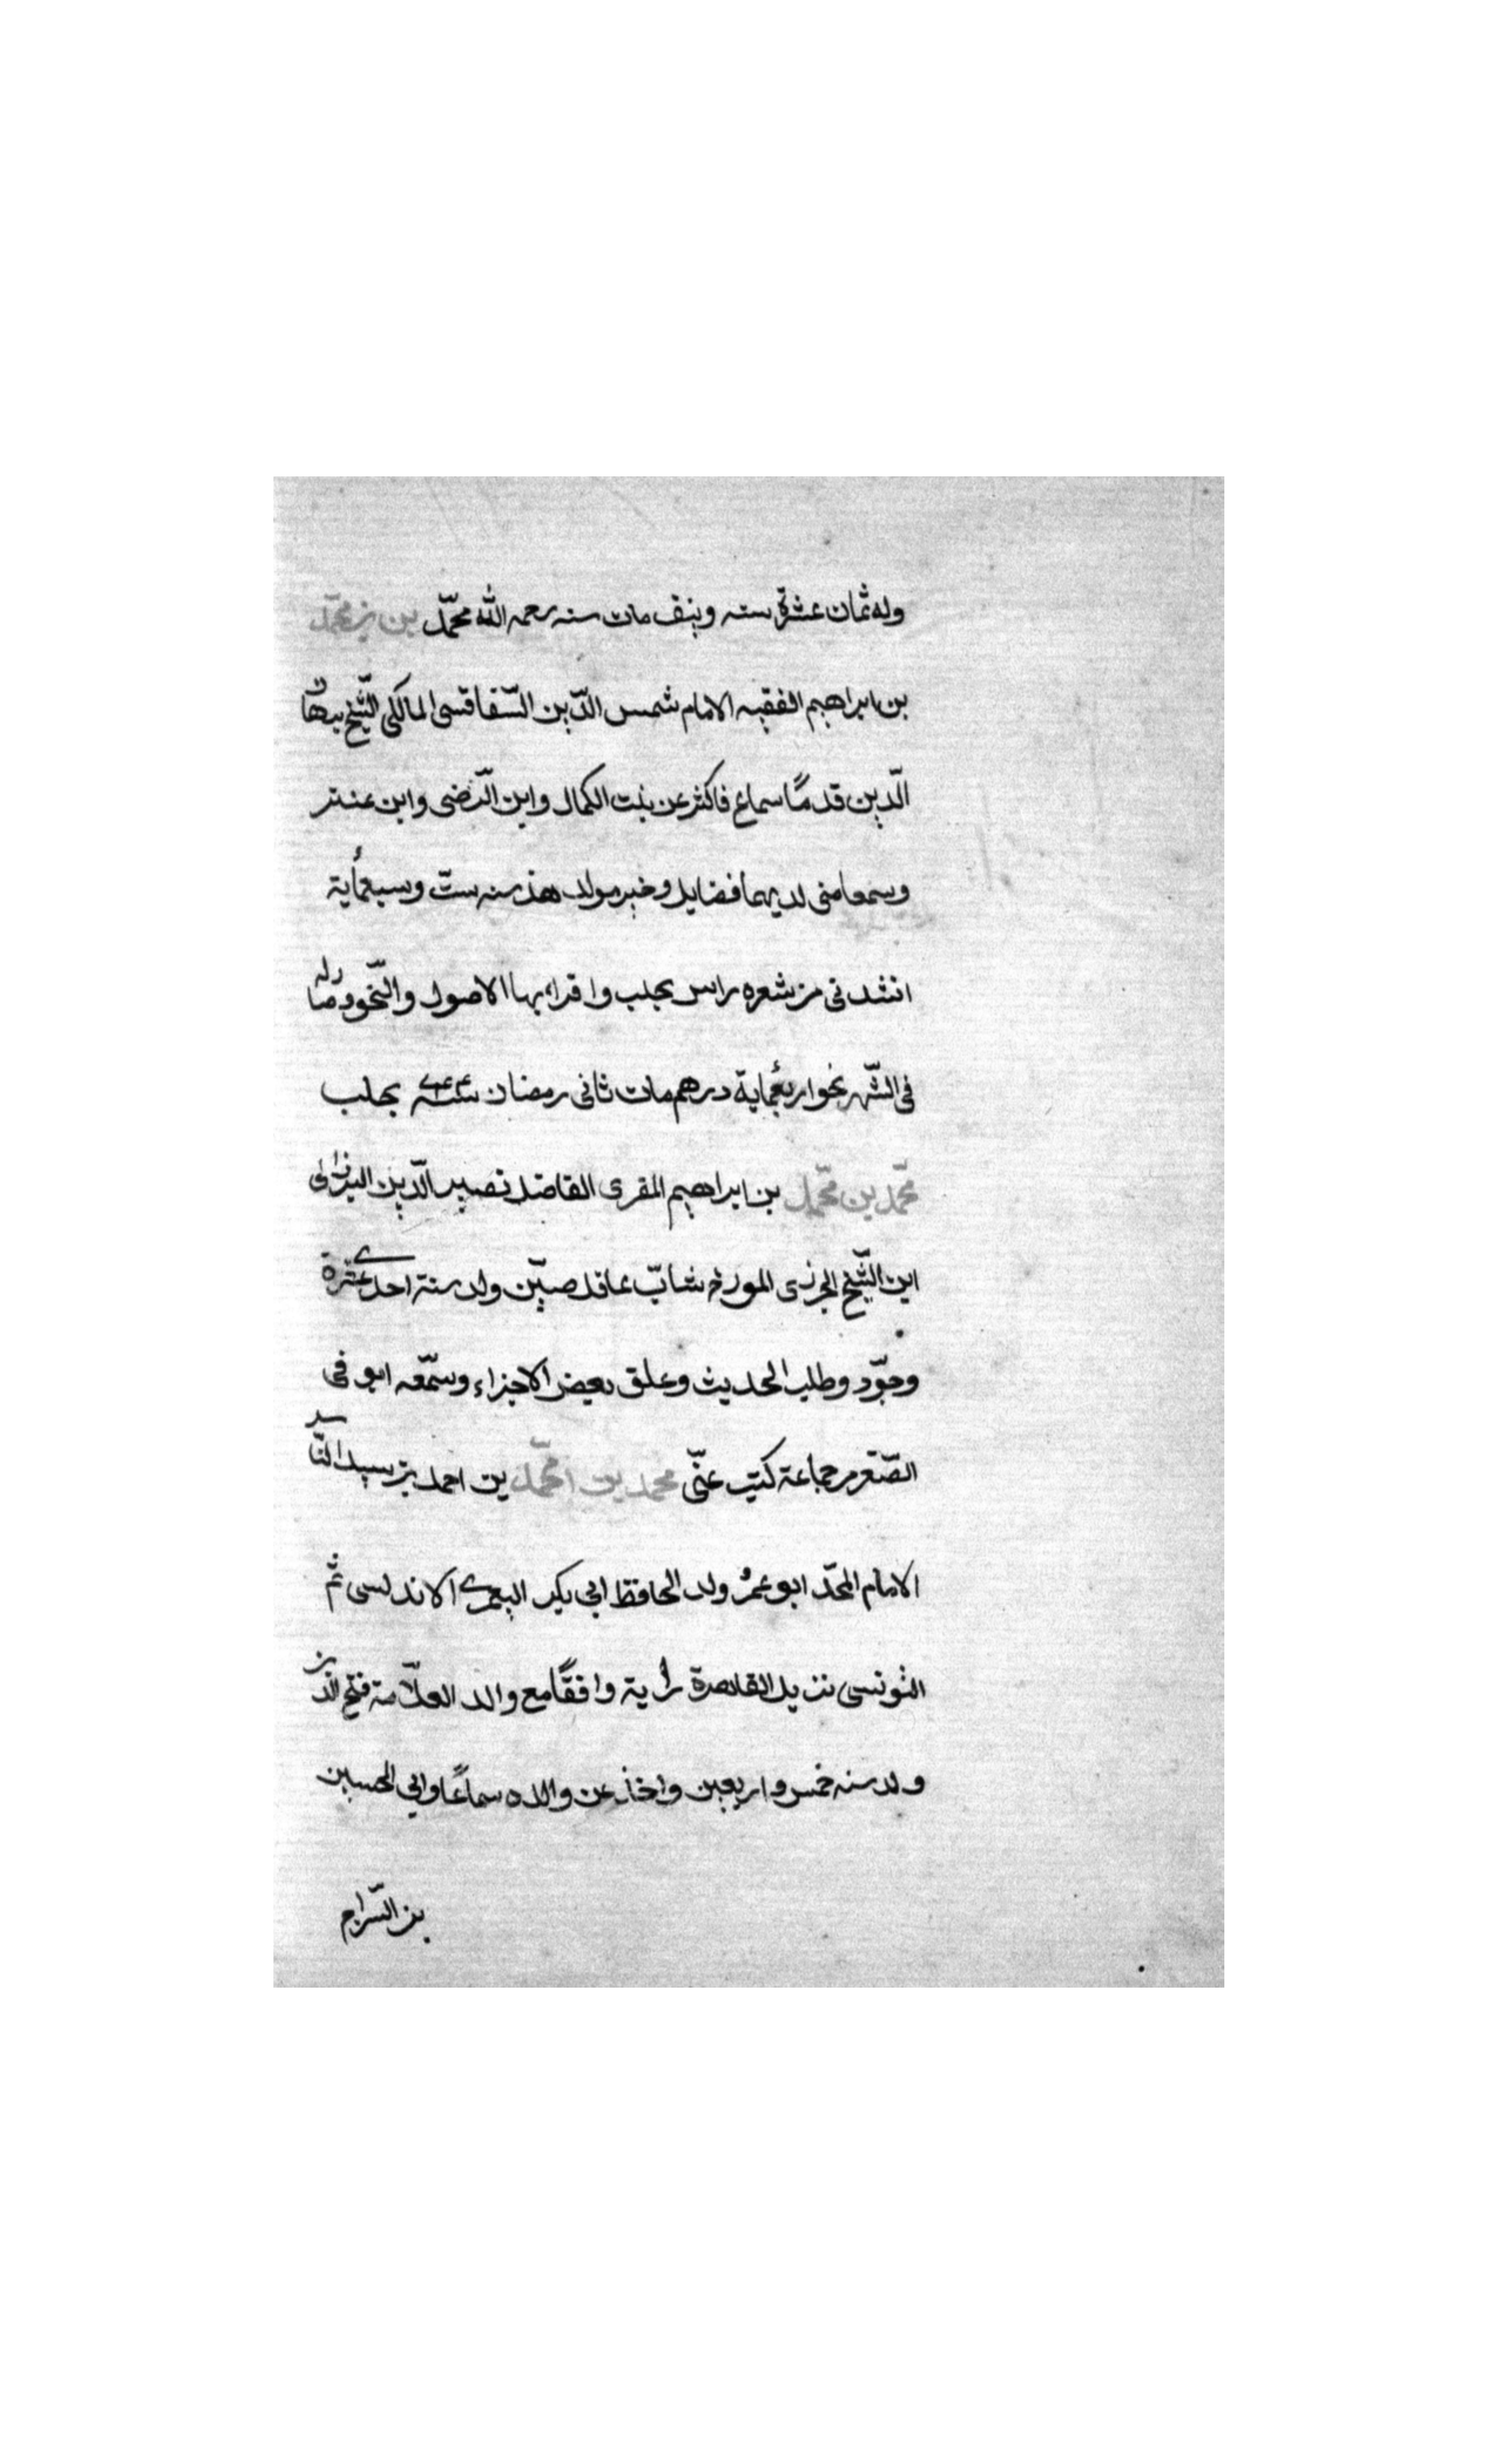 وله ثمان عشرة سنه ونيف مات سنه رحمه الله محمّد بن محمّد
بن ابراهيم الفقيه الامام شمس الدّين السّفاقسى المالكى الشّيخ
الّدين قدمًا سماع فاكثر عن بنت الكمال وابن الرّضى وابن عنتر
وسمعا منى لديهما فضايل وخير مولد هذ سنه ستّ وسبعمأية
انشدنى من شعره راس بحلب واقراء بها الاصول والنّحو وصار له
فى الشّهر نحو اربعمأية درهم مات ثانى رمضان سنة ٧٤٤ بحلب
محمّد بن محمّد بن ابراهيم المقرى الفاضل نصير الّدين
ابن الشّيخ الجزرى المورخ شابّ عاقل صيّن ولد سنة احدى عشرة
وجوّد وطلب الحديث وعلق بعض الاجزاء وسمّعه ابو فى
الصّغر من جماعة كتب عنّى محمد بن محمّد بن احمد بن سيد النّاس
الامام المحدّ ابو عمرُ ولد الحافظ ابى بكر اليعمرى الاندلسى ثمّ
التونسى نزيل القاهرة رأية وافقًا مع والد العلّامة فتح الدّين
ولد سنه خمس واربعين واخذ عن والده سماعًا وابى الحسين
بن السّراج